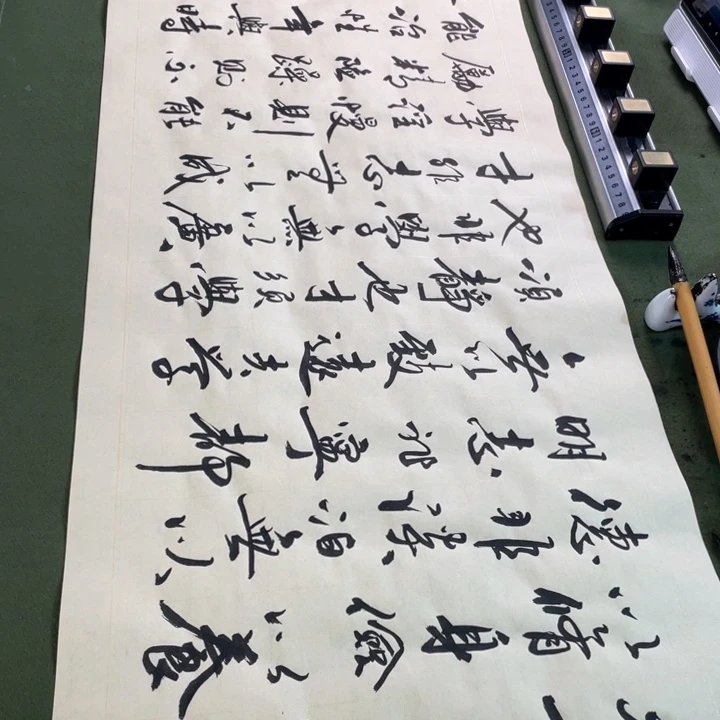 以脩身儉以養
德非淡泊無以
明志非寧靜
無以致遠夫學
須靜也才須學
也非學無以廣
才非志無以成
學淫慢則不能
勵精險躁則不
能治性年與時